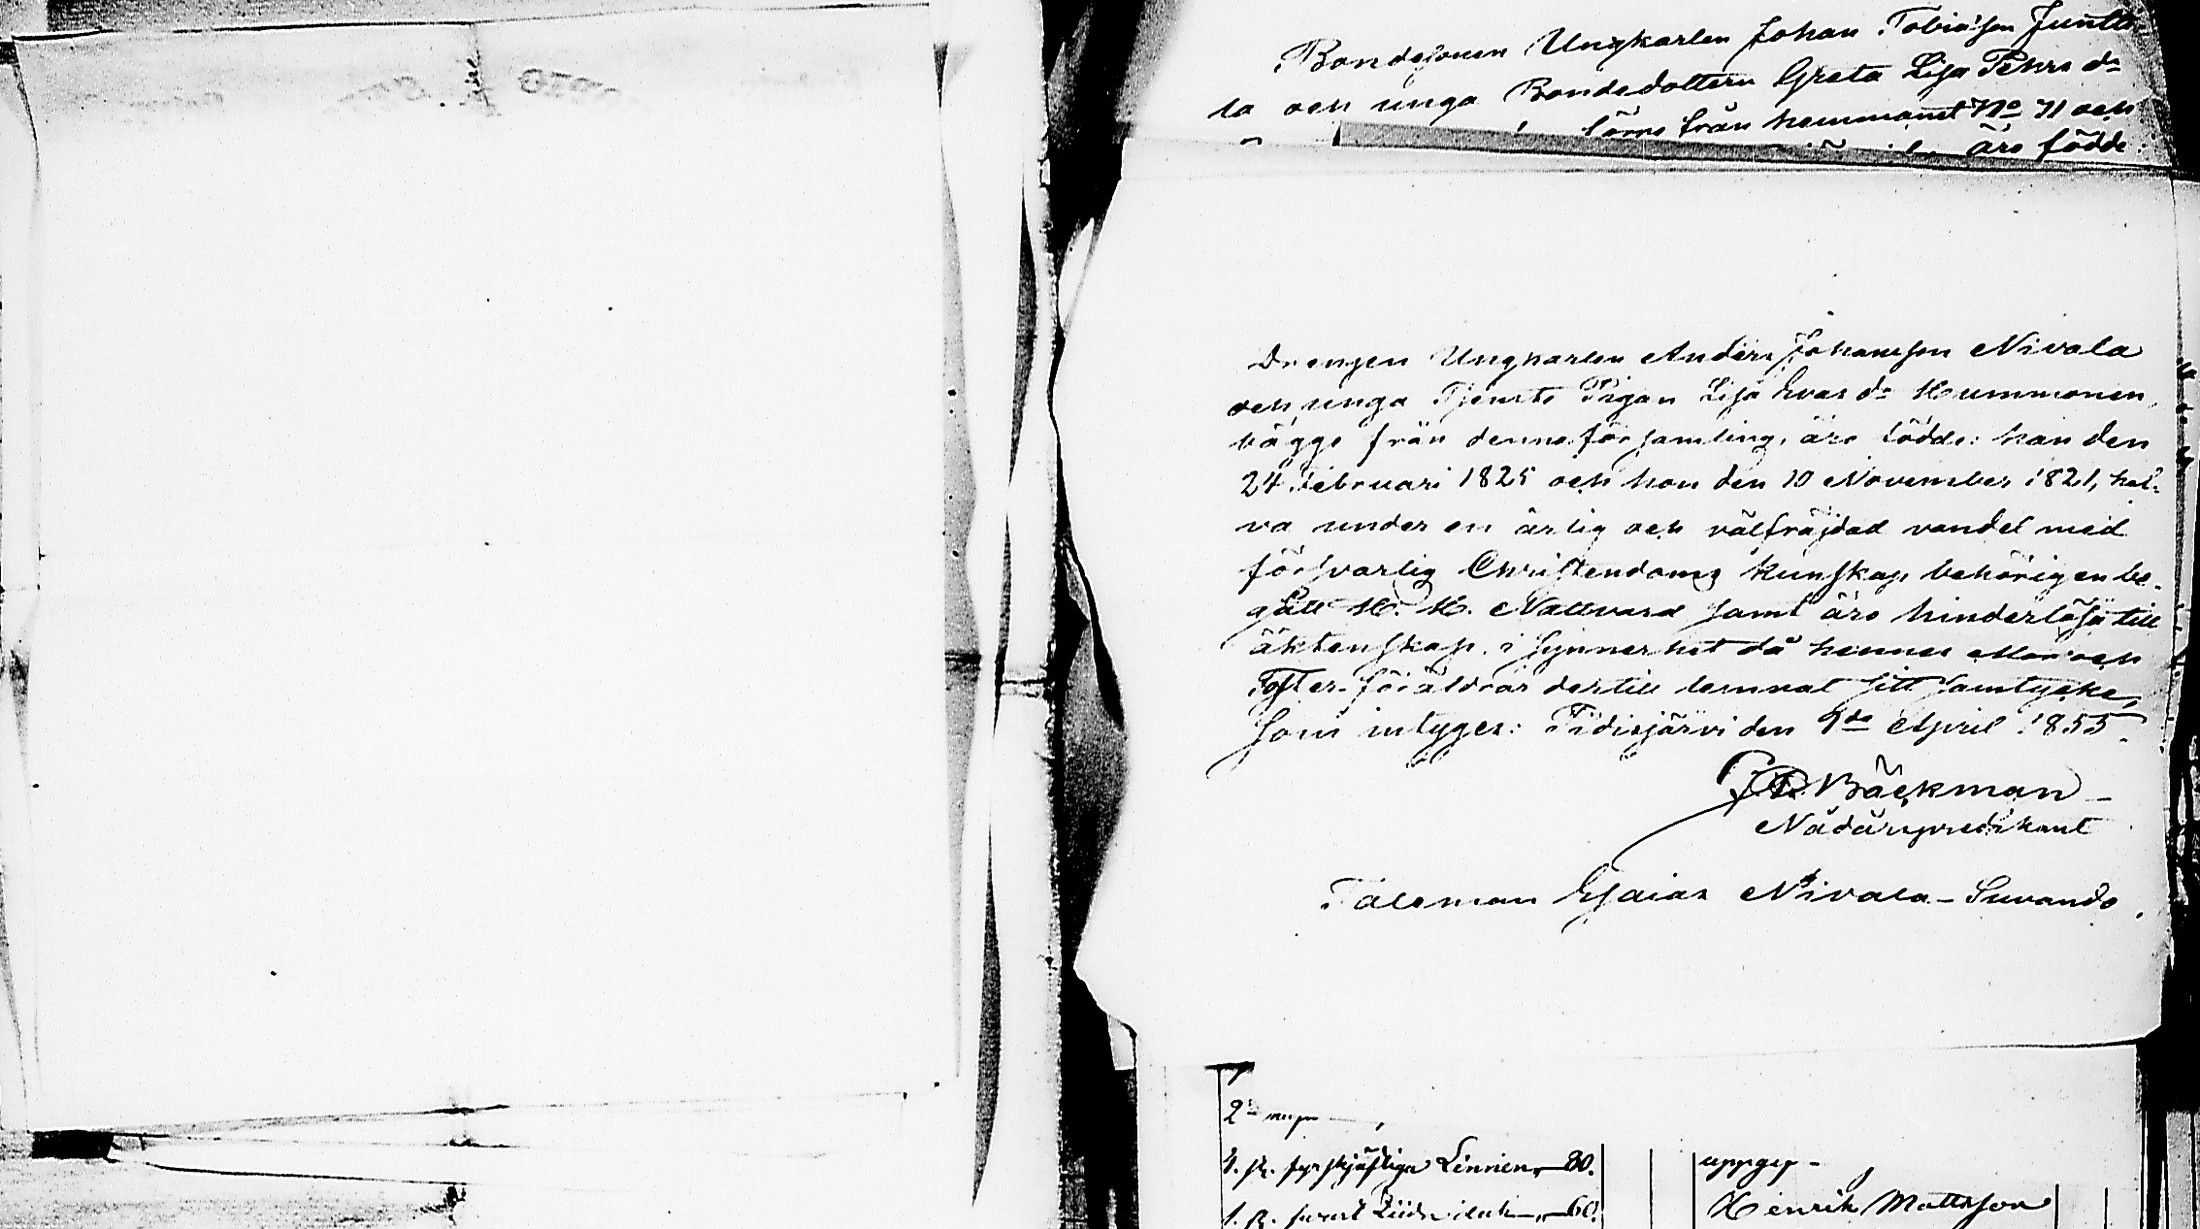 Bondesonen Ungkarlen Johan Tobias'son Juntti
la och unga Bondedottern Greta Lisa Pehrs dr
från hemmanet No 71 och
äro födde:
Drengen Ungkarlen Anders Johansson Nivala
och unga Tjenste Pigan Lisa Evas dr Hummonen,
bägge från denna församling, äro födde: han den
24 Februari 1825 och hon den 10 November 1821, haf-
va under en ärlig och välfräjdad vandel med
försvarlig Christendoms kunskap behörigen be-
gått H. H. Nattvard samt äro hinderlösa till
äktenskap, i synnerhet då hennes Mor och
Foster-föräldrar dertill lemnat sitt samtycke,
som intyges: Tidisjärvi den 9de April 1855.
Bäckman
Nådårspredikant
Taleman Esaias Nivala - Suvando
2
1. st. fyrskäftiga Linnen, — 80.
1. st. svart — 60.
uppgep -
Henrik Mattsson